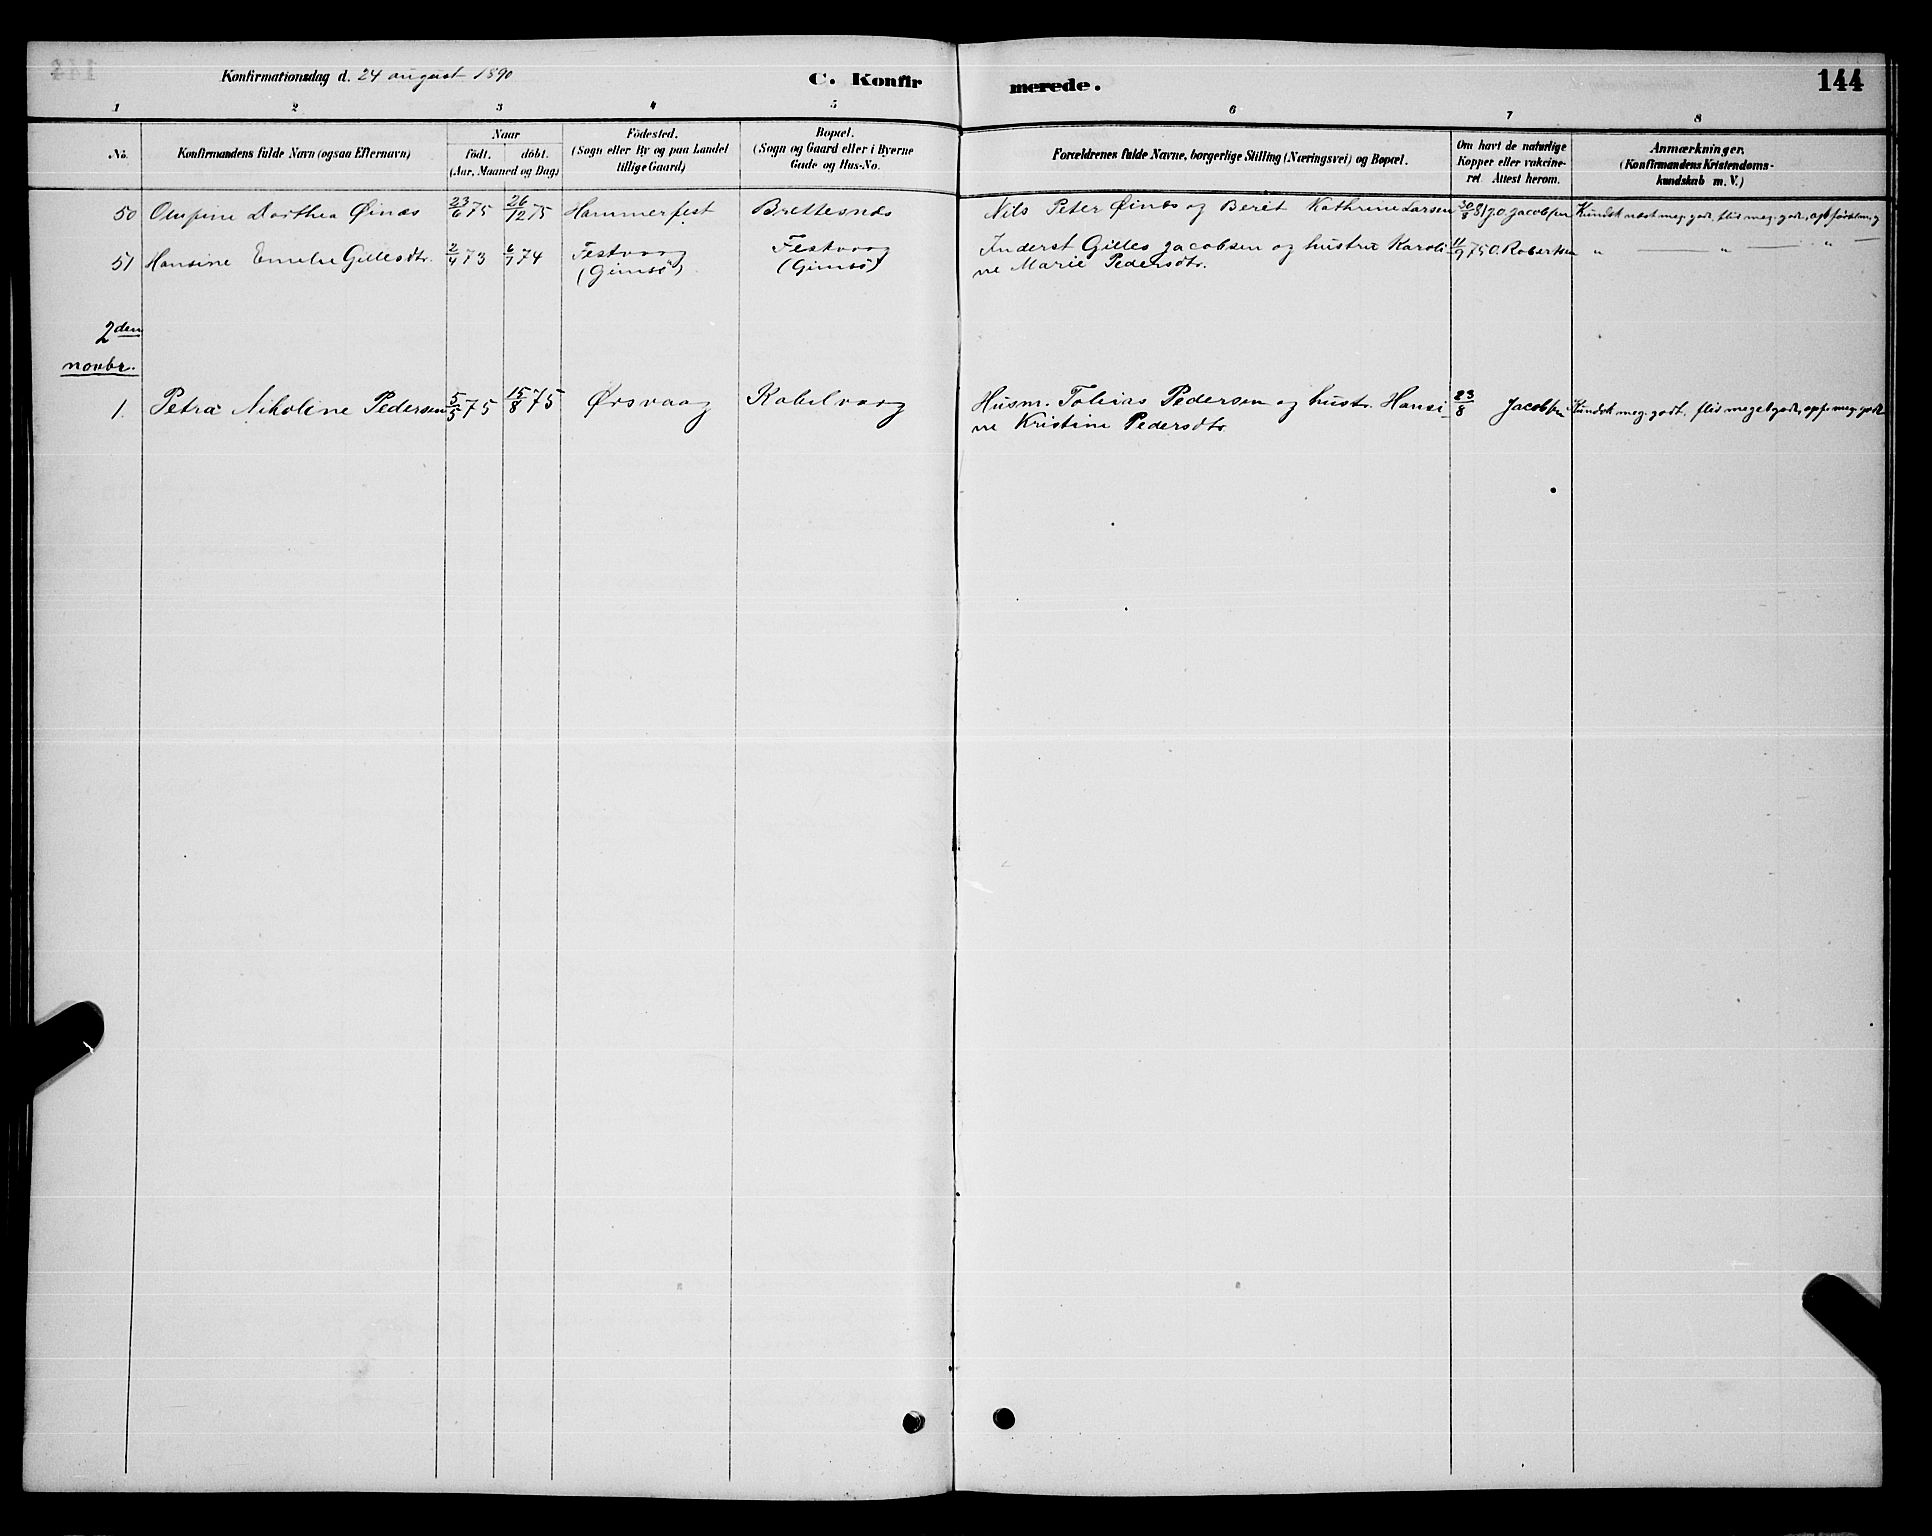 Konfirmationsdag d. 24 august 1890
C. Konfirmerede.
144
1 2 3 4 5 6 7 8
No. Konfirmandens fulde Navn (ogsaa Efternavn) Naar födt. döbt. (Aar, Maaned og Dag) Födested. (Sogn eller By og paa Landet tillige Gaard) Bopæl. (Sogn og Gaard eller i Byerne Gade og Hus-No. Forældrenes fulde Navne, borgerlige Stilling (Næringsvei) og Bopæl. Om havt de naturlige Kopper eller vakcineret Attest herom. Anmærkninger. (Konfirmandens Kristendomskundskab m. V.)
50 Dorthea Øinæs 23/6 75 26/12 75 Hammerfest Brettesnæs Nils Peter Øinæs og Beret Kathrine Larsen 30/8 81 J.O. Jacobsen Kundsk næst meg. godt, flid meg. godt,
51 Hansine Emelie Gillesdtr. 2/4 73 6/1 74 Festvaag (Gimsø) Festvaag (Gimsø) Inderst Gilles Jacobsen og hustru Karoli-
ne Marie Pedersdtr. 11/9 75 O. Robertsen " " "
2den
novbr.
1. Petra Nikoline Pedersen 5/5 75 15/8 75 Ørsvaag Kabelvaag Husm. Tobias Pedersen og hustr. Hansi-
ne Kristine Pedersdtr. 23/8 Jacobsen Kundsk meg. godt, flid meget godt, opf. meg. godt